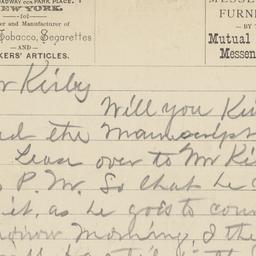 BROADWAY COR. PARK PLACE,
NEW YORK.
—for—
er and Manufacturer of
Tobacco, Segarettes
— AND —
KERS' ARTICLES.
MESSE
FURN
— BY T
Mutual
Messen
r Kirby
Will you Ki
d the Manuscript
Lease over to Mr Ki
P. M. So that he c
it, as he goes to coun
orrow Morning, I the